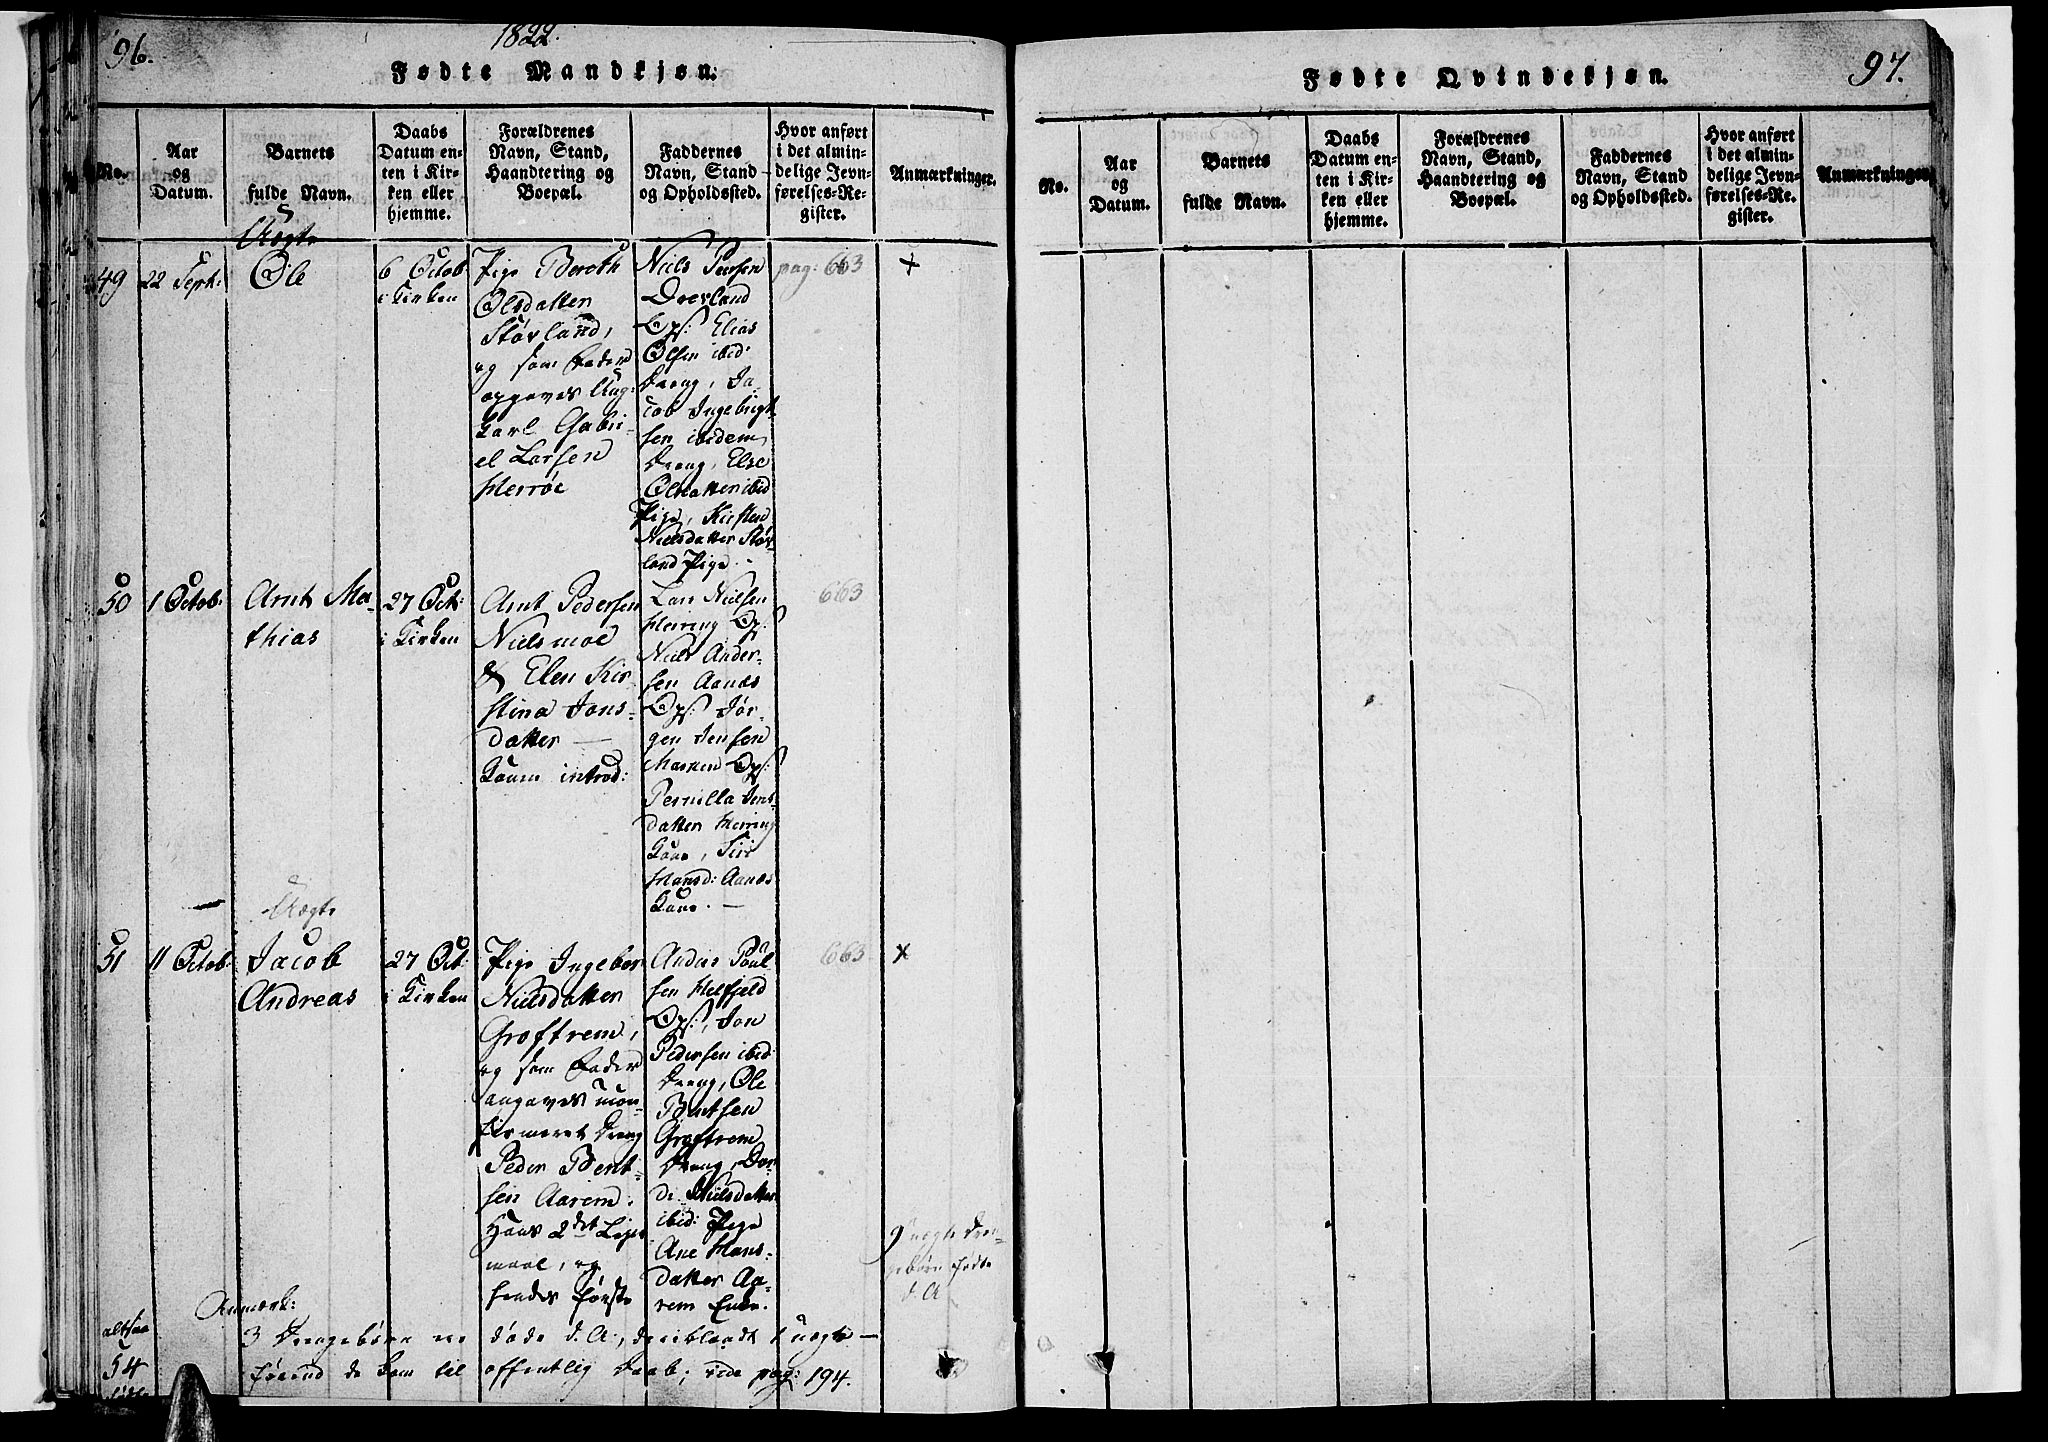 96.
1822.
Fødte Mandkjøn.
No.
Aar
og
Datum.
Barnets
fulde Navn.
Daabs
Datum en-
ten i Kir-
ken eller
hjemme.
Forældrenes
Navn, Stand,
Haandtering og
Boepæl.
Faddernes
Navn, Stand
og Opholdssted.
Hvor anført
i det almin-
delige Jevn-
førelses-Re-
gister.
Anmærkninger.
Uægte
49
22 Septr:
Ole
6 Octob
i Kirken
Pige Bereth
Olsdatter
Størland,
og som Fader
opgives Ung-
karl Gabri-
el Larsen
Herrøe
Niels Persen
Drevland
Ops: Elias
Olsen ibid:
Dreng, Ja-
cob Ingebrigt-
sen ibidem
Dreng, Else
Olsdatter ibid
Pige, Kirsten
Nielsdatter Stør-
land Pige.
pag: 663
+
50
1 Octob:
Arnt Ma-
thias
27 Oct:
i Kirken
Arnt Pedersen
Nielsmoe
& Elen Kir-
stina Jons-
datter —
Konen introd:
Lars Nielsen
Herring Ops:
Niels Ander-
sen Aanæs
Ops: Jør-
gen Jensen
Marken Ops:
Pernilla Jens-
datter Herring
Kone, Siri
Hansd: Aanæs
Kone. —
663
Uægte
51
11 Octob:
Jacob
Andreas
27 Oct:
i Kirken
Pige Ingebor
Nielsdatter
Groftrem,
og som Fader
angaves ucon-
firmeret Dreng
Peder Bent-
sen Aarem.
Hans 2det Leier
maal, og
hendes første
Anders Poul
sen Helfjeld
Ops:, Jon
Pedersen ibid
Dreng, Ole
Bentsen
Groftrem
Dreng, Dor-
de Nielsdatter
ibid: Pige
Ane Hans-
datter Aa-
rem Enke.
663
x
9 uægte Dren-
gebørn fødte
d. A.
Anmærk:
altsaa
54
fødte
3 Drengebørn ere døde d. A:, deriblandt 1 uægte —
førend de kom til offentlig Daab; vide pag: 194.
97.
Fødte Qvindekjøn.
No.
Aar
og
Datum.
Barnets
fulde Navn.
Daabs
Datum en-
ten i Kir-
ken eller
hjemme.
Forældrenes
Navn, Stand,
Haandtering og
Boepæl.
Faddernes
Navn, Stand
og Opholdssted.
Hvor anført
i det almin-
delige Jevn-
førelses-Re-
gister.
Anmærkninger